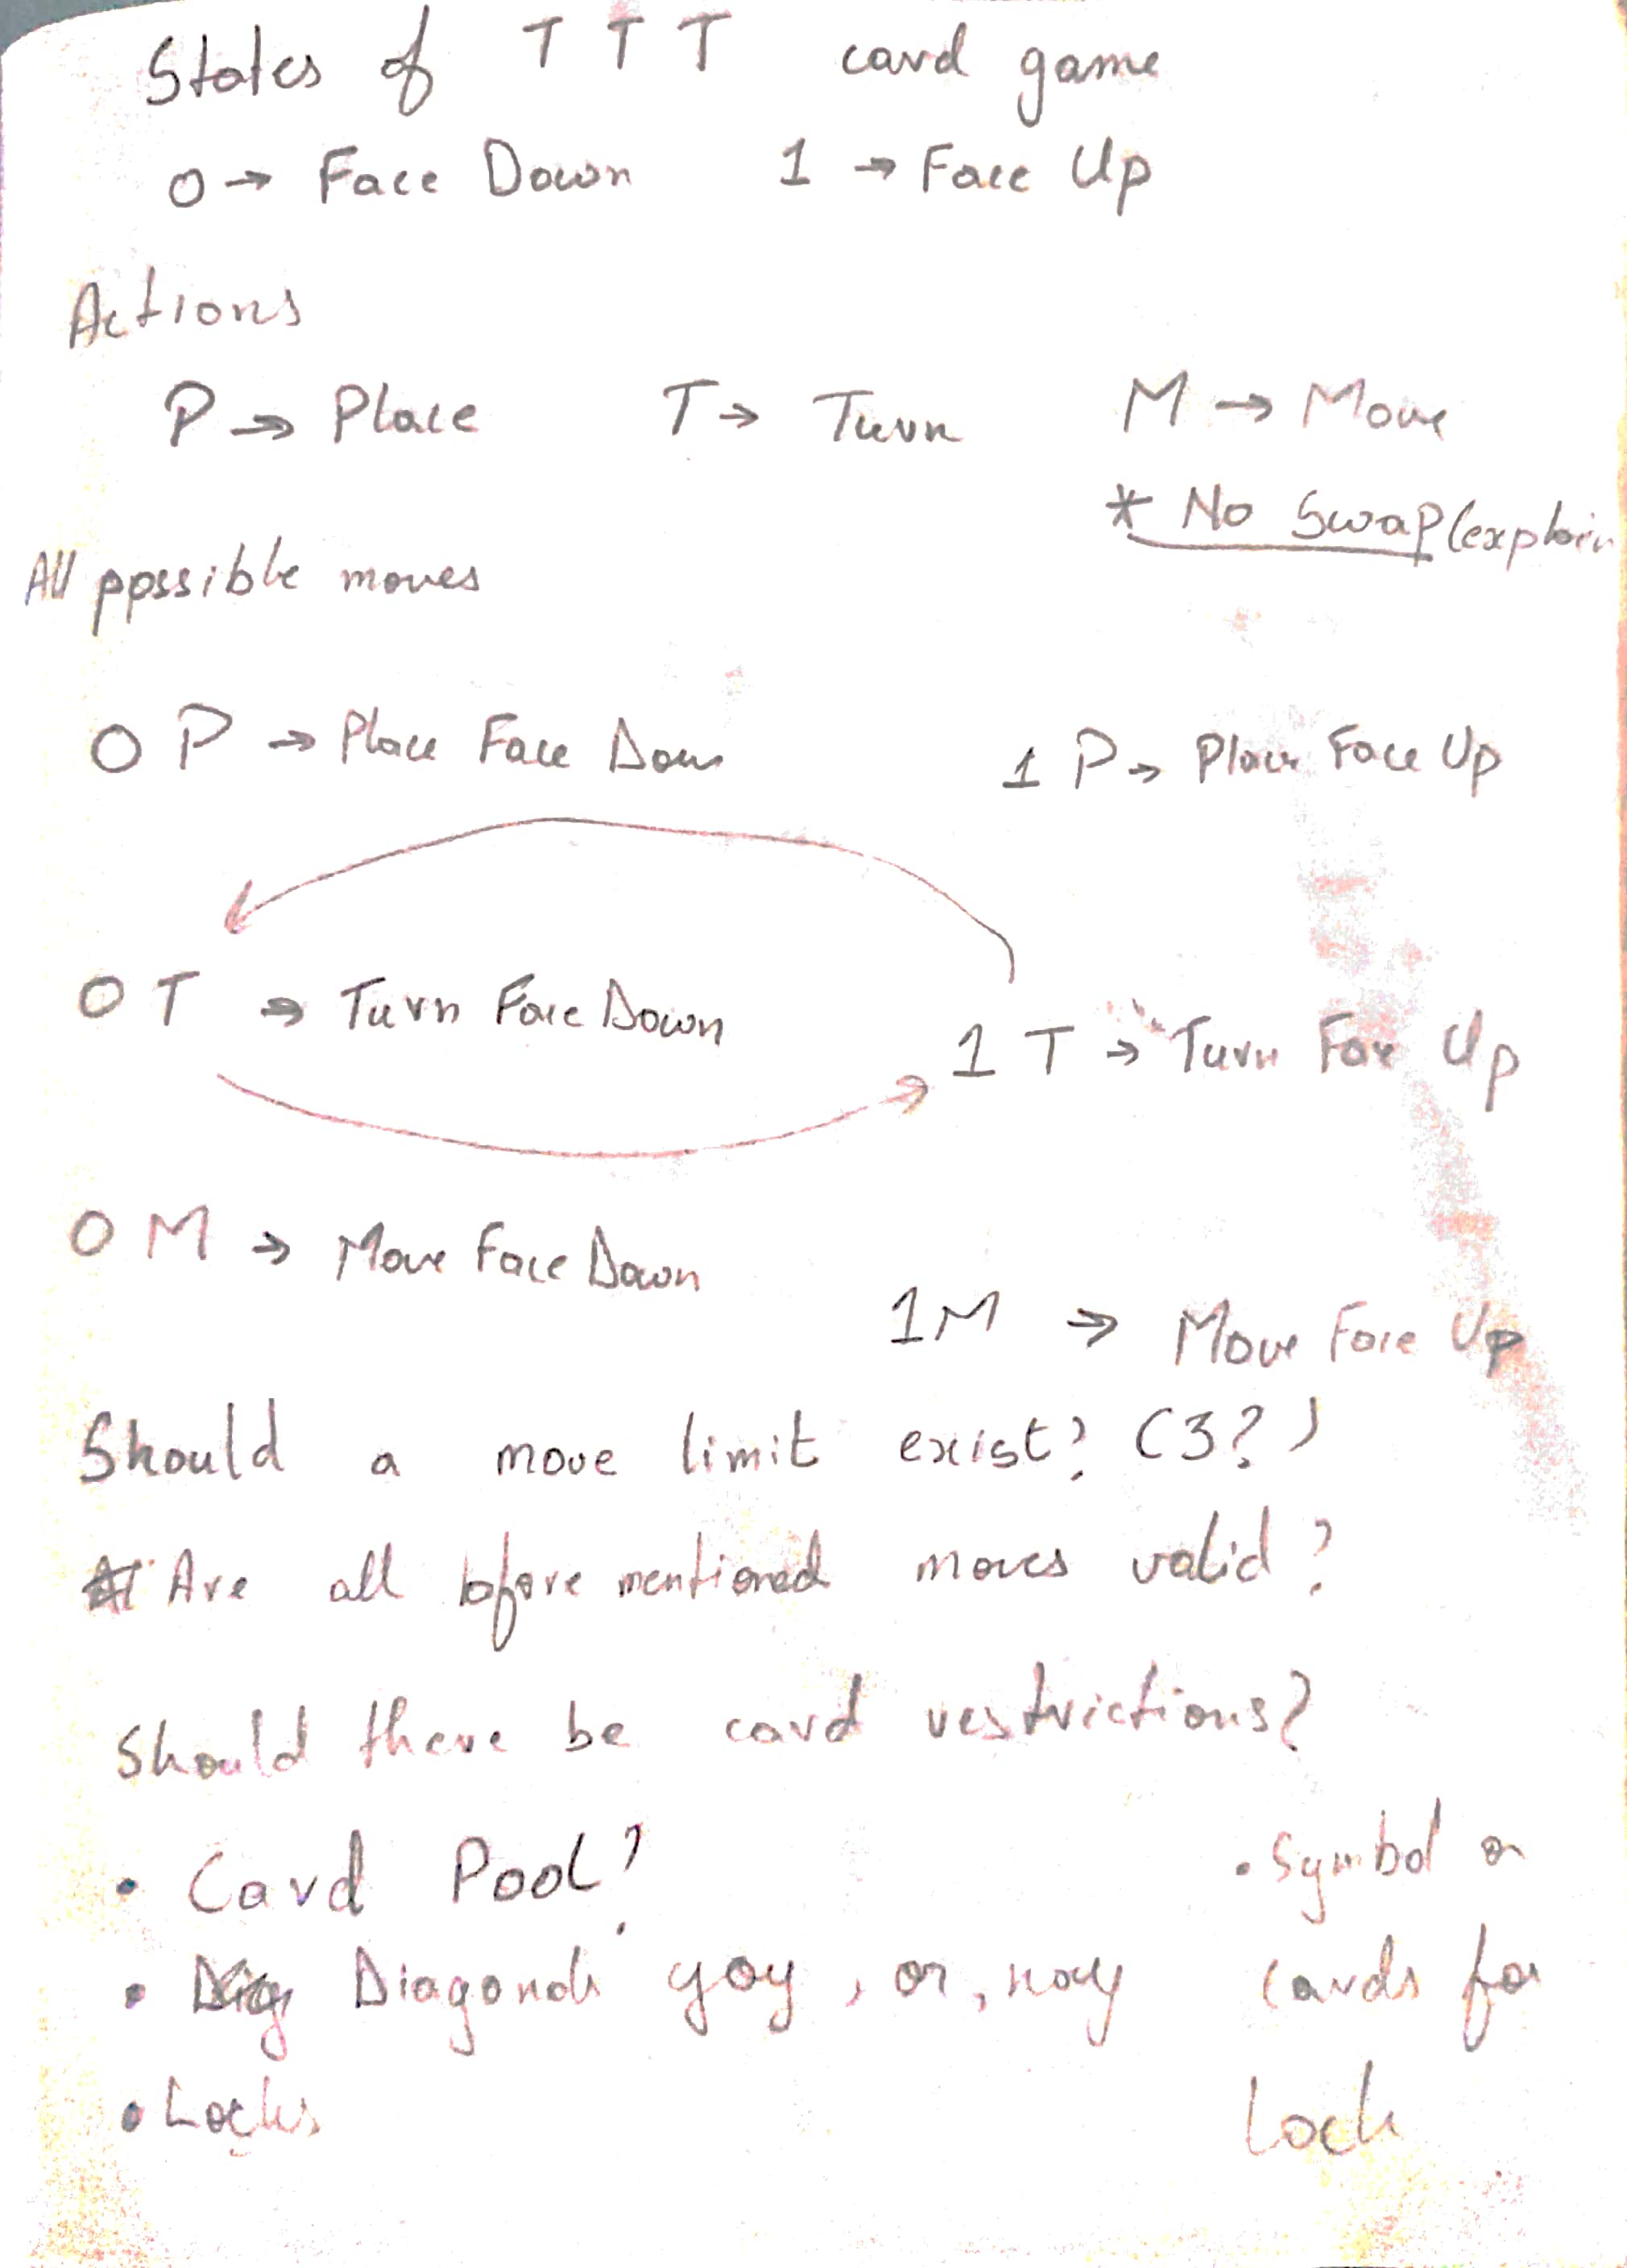 States of T T T card game
0 → Face Down 1 → Face Up
Actions
P → Place T → Turn M → Move
* No Swap (explain
All possible moves
0 P → Place Face Down 1 P → Place Face Up
0 T → Turn Face Down
1 T → Turn Face Up
0 M → Move Face Down
1M → Move Face Up
Should a move limit exist? (3?)
Are all before mentioned moves valid?
Should there be card restrictions?
• Card Pool?
• Diagonals yay, or, nay
• Locks
• Symbol on
cards for
lock